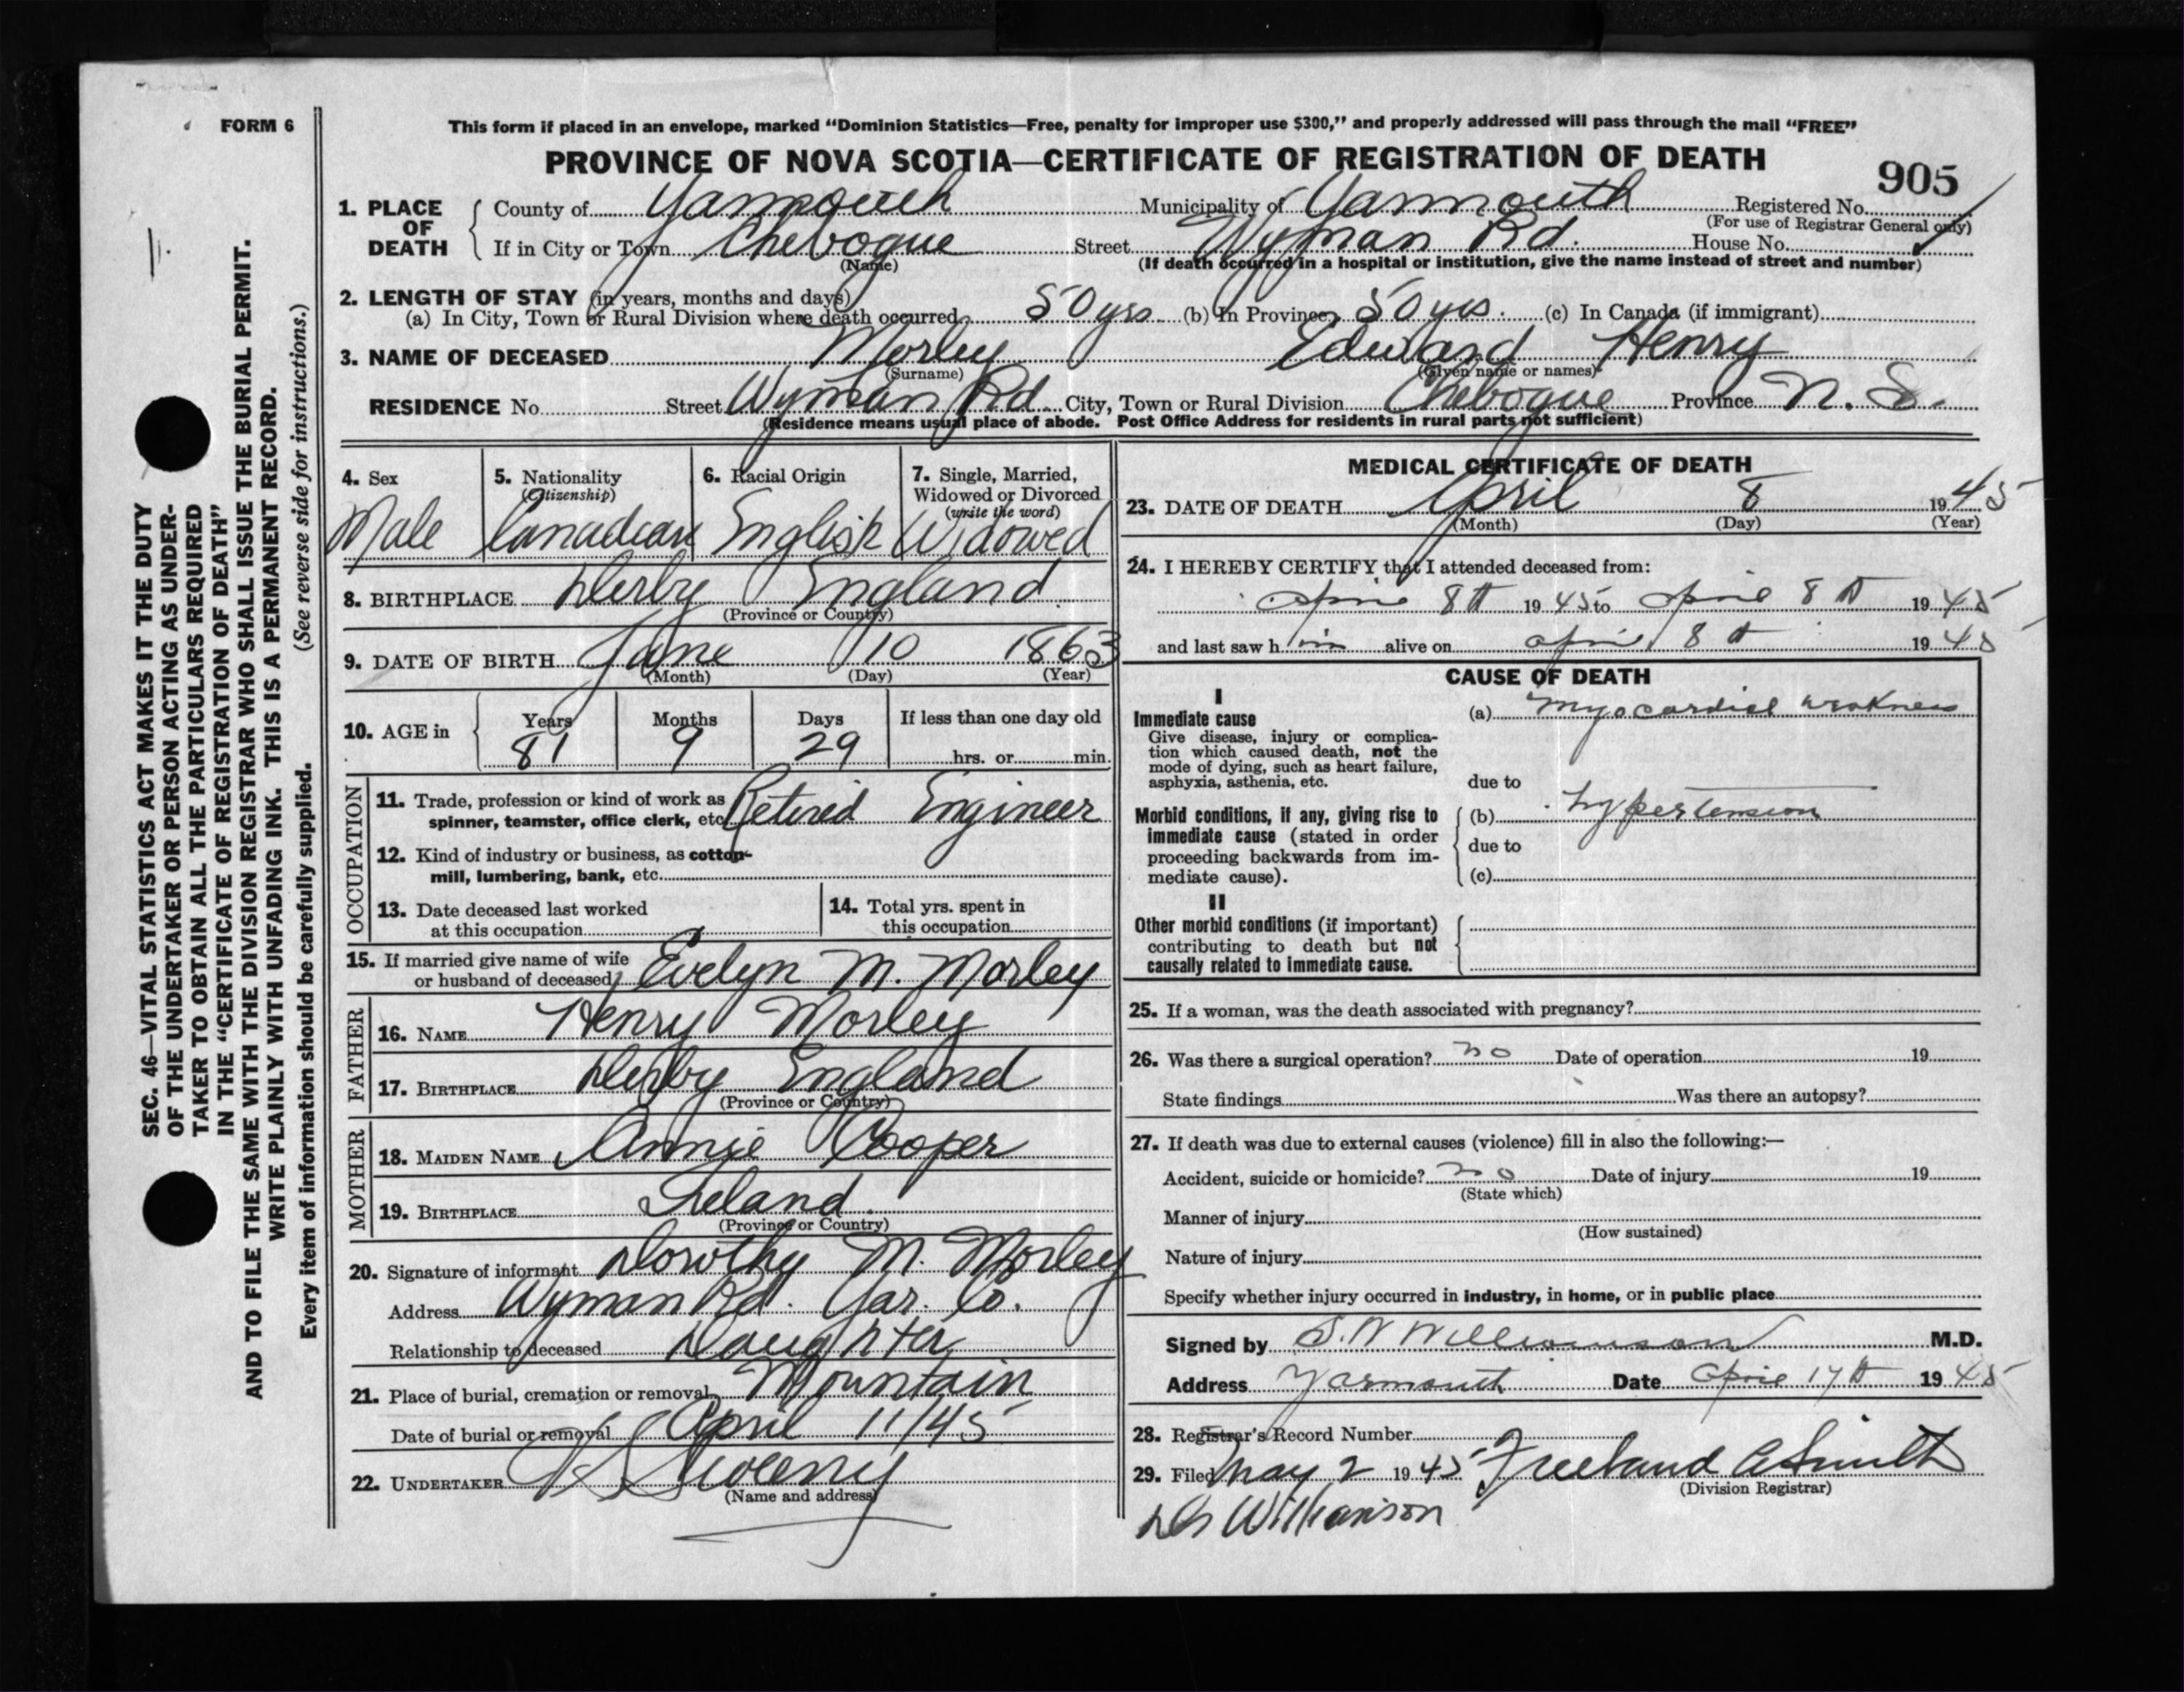 FORM 6
This form if placed in an envelope, marked "Dominion Statistics—Free, penalty for improper use $300," and properly addressed will pass through the mail "FREE"
PROVINCE OF NOVA SCOTIA—CERTIFICATE OF REGISTRATION OF DEATH
905
1. PLACE OF DEATH
County of Yarmouth Municipality of Yarmouth Registered No.
(For use of Registrar General only)
If in City or Town Chebogue Street Wyman Rd. House No.
(Name) (If death occurred in a hospital or institution, give the name instead of street and number)
2. LENGTH OF STAY (in years, months and days)
(a) In City, Town or Rural Division where death occurred 50 yrs (b) In Province 50 yrs. (c) In Canada (if immigrant)
3. NAME OF DECEASED Morley Edward Henry
(Surname) (Given name or names)
RESIDENCE No. Street Wyman Rd City, Town or Rural Division Chebogue Province N. S.
(Residence means usual place of abode. Post Office Address for residents in rural parts not sufficient)
4. Sex
Male
5. Nationality
(Citizenship)
Canadian
6. Racial Origin
English
7. Single, Married,
Widowed or Divorced
(write the word)
Widowed
8. BIRTHPLACE Derby England
(Province or Country)
9. DATE OF BIRTH June 10 1863
(Month) (Day) (Year)
10. AGE in
Years Months Days If less than one day old
81 9 29 hrs. or min.
OCCUPATION
11. Trade, profession or kind of work as
spinner, teamster, office clerk, etc. Retired Engineer
12. Kind of industry or business, as cotton-
mill, lumbering, bank, etc.
13. Date deceased last worked
at this occupation
14. Total yrs. spent in
this occupation
15. If married give name of wife
or husband of deceased Evelyn M. Morley
FATHER
16. NAME Henry Morley
17. BIRTHPLACE Derby England
(Province or Country)
MOTHER
18. MAIDEN NAME Annie Cooper
19. BIRTHPLACE Ireland.
(Province or Country)
20. Signature of informant Dorothy M. Morley
Address Wyman Rd. Yar. Co.
Relationship to deceased Daughter
21. Place of burial, cremation or removal Mountain
Date of burial or removal April 11/45
22. UNDERTAKER Sweeny
(Name and address)
MEDICAL CERTIFICATE OF DEATH
23. DATE OF DEATH April 8 1945
(Month) (Day) (Year)
24. I HEREBY CERTIFY that I attended deceased from:
April 8th 1945 to April 8th 1945
and last saw him alive on April 8th 1945
CAUSE OF DEATH
I
Immediate cause
Give disease, injury or complica-
tion which caused death, not the
mode of dying, such as heart failure,
asphyxia, asthenia, etc.
(a) myocardial weakness
due to
Morbid conditions, if any, giving rise to
immediate cause (stated in order
proceeding backwards from im-
mediate cause).
(b) hypertension
due to
(c)
II
Other morbid conditions (if important)
contributing to death but not
causally related to immediate cause.
25. If a woman, was the death associated with pregnancy?
26. Was there a surgical operation? no Date of operation 19
State findings Was there an autopsy?
27. If death was due to external causes (violence) fill in also the following:—
Accident, suicide or homicide? no Date of injury 19
(State which)
Manner of injury
(How sustained)
Nature of injury
Specify whether injury occurred in industry, in home, or in public place
Signed by S. W Williamson M.D.
Address Yarmouth Date April 17th 1945
28. Registrar's Record Number
29. Filed May 2 1945 Freeland A Smith
(Division Registrar)
Dr Williamson
SEC. 46—VITAL STATISTICS ACT MAKES IT THE DUTY
OF THE UNDERTAKER OR PERSON ACTING AS UNDER-
TAKER TO OBTAIN ALL THE PARTICULARS REQUIRED
IN THE "CERTIFICATE OF REGISTRATION OF DEATH"
AND TO FILE THE SAME WITH THE DIVISION REGISTRAR WHO SHALL ISSUE THE BURIAL PERMIT.
WRITE PLAINLY WITH UNFADING INK. THIS IS A PERMANENT RECORD.
Every item of information should be carefully supplied. (See reverse side for instructions.)